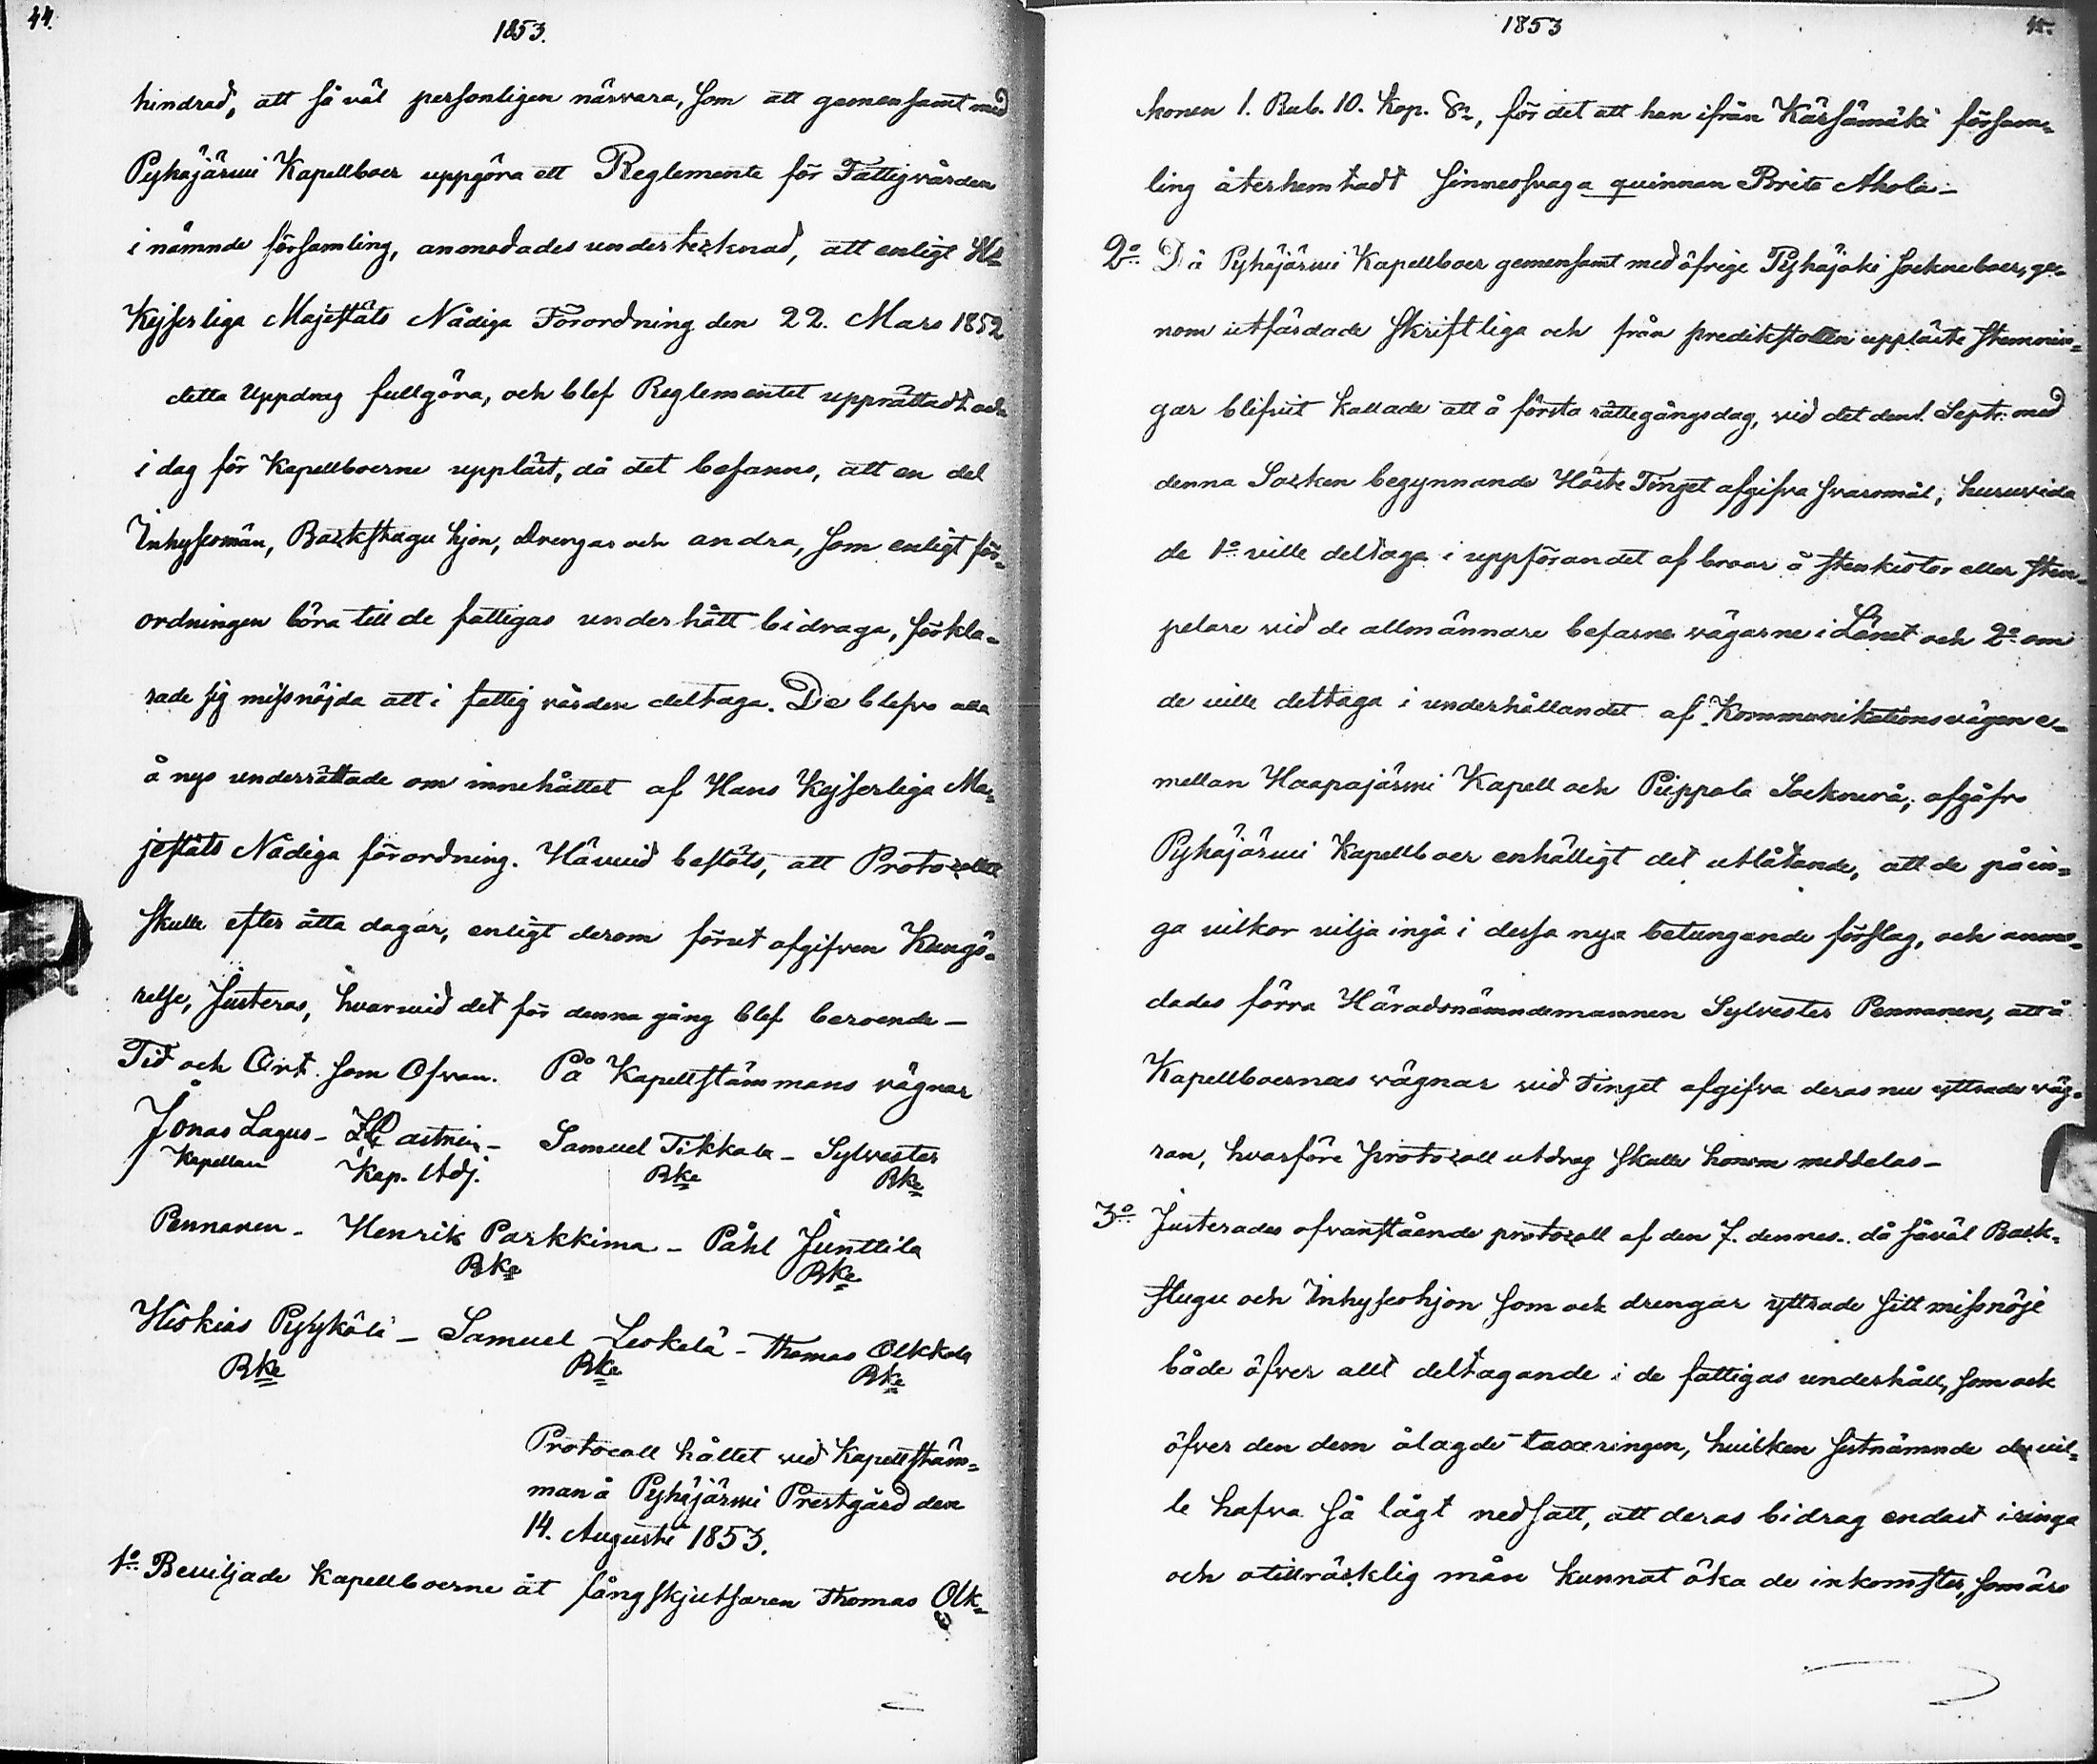 44.
1853.
hindrad, att så väl personligen närvara, som att gemensamt med
Pyhäjärwi Kapellboer uppgöra ett Reglemente för Fattigvården
i nämnde församling, anmodades undertecknad, att enligt Hs
Kejserliga Majestäts Nådiga Förordning den 22. Mars 1852
detta Uppdrag fullgöra, och blef Reglementet upprättadt och
i dag för Kapellboerne uppläst, då det befanns, att en del
Inhysesmän, Backstugu hjon, Drengar och andra, som enligt för-
ordningen böra till de fattigas underhåll bidraga, förkla-
rade sig missnöjda att i fattig vården deltaga. De blefvo alla
å nyo underrättade om innehållet af Hans Kejserliga Ma-
jestäts Nådiga förordning. Härwid bestäts, att Protocollet
skulle efter åtta dagar, enligt derom förut afgifven Kungö-
relse, Justeras, hvarwid det för denna gång blef beroende –
Tid och Ort som Ofvan. På Kapellstämmans vägnar
Jonas Lagus – Castrén – Samuel Tikkala – Sylvester
Kapellan Kap. Adj. Bke Bke
Pennanen – Henrik Parkkima – Påhl Junttila
Bke Bke
Hiskias Pyykölä – Samuel Leskelä – Thomas Olkkola
Bke Bke Bke
Protocoll hållet vid Kapellstäm-
man å Pyhäjärwi Prestgård den
14. Augusti 1853.
1o. Beviljade Kapellboerne åt fångskjutsaren Thomas Olk-
1853
45.
konen 1. Rub. 10. Kop. Sr, för det att han ifrån Kärsämäki försam-
ling återhemtadt sinnessvaga quinnan Brita Ahola –
2o. Då Pyhäjärwi Kapellboer gemensamt med öfrige Pyhäjoki Sockneboer, ge-
nom utfärdade skriftliga och från predikstolen uppläste stämnin-
gar blifvit kallade att å första rättegångsdag, vid det den 1. Septr. med
denna Socken begynnande Höste Tinget afgifva svaromål, huruvida
de 1o. ville deltaga i uppförandet af broar å stenkistor eller sten-
pelare vid de allmännare befarne vägarne i Länet och 2o. om
de ville deltaga i underhållandet af Kommunikationsvägen e-
mellan Haapajärwi Kapell och Piippola Socknerå, afgåfvo
Pyhäjärwi Kapellboer enhälligt det utlåtande, att de på in-
ga vilkor vilja ingå i dessa nya betungande förslag, och anmo-
dades förra Häradsnämndemannen Sylvester Pennanen, att å
Kapellboernas vägnar vid tinget afgifva deras nu yttrade väg-
ran, hvarföre protocoll utdrag skulle honom meddelas –
3o. Justerades ofvanstående protocoll af den 7. dennes. då såväl Back-
stugu och Inhyseshjon som ock drengar yttrade sitt missnöje
både öfver allt deltagande i de fattigas underhåll, som ock
öfver den dem ålagde taxeringen, hvilken sistnämnde de vil-
le hafva så lågt nedsatt, att deras bidrag endast i ringa
och otillräcklig mån kunnat öka de inkomster, som äro